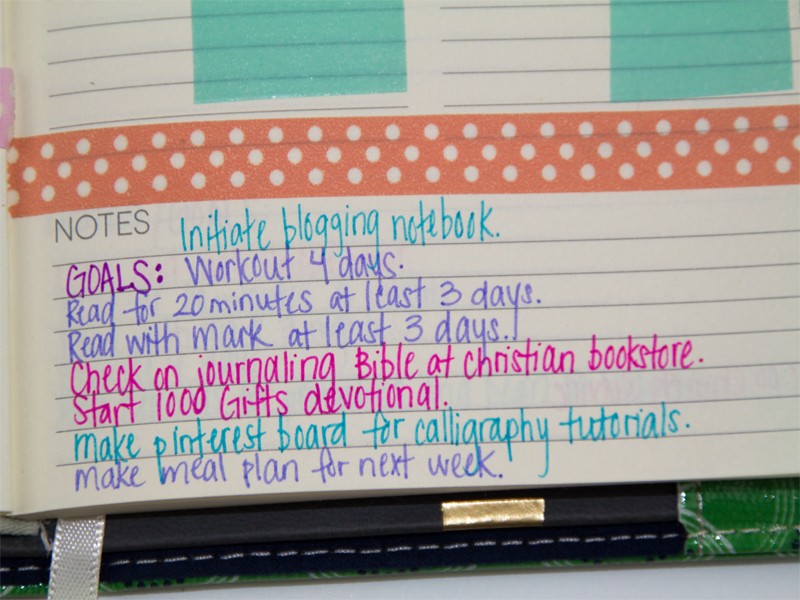 NOTES Initiate blogging notebook.
GOALS: Workout 4 days.
Read for 20 minutes at least 3 days.
Read with mark at least 3 days.
Check on journaling Bible at christian bookstore.
Start 1000 Gifts devotional.
make pinterest board for calligraphy tutorials.
make meal plan for next week.